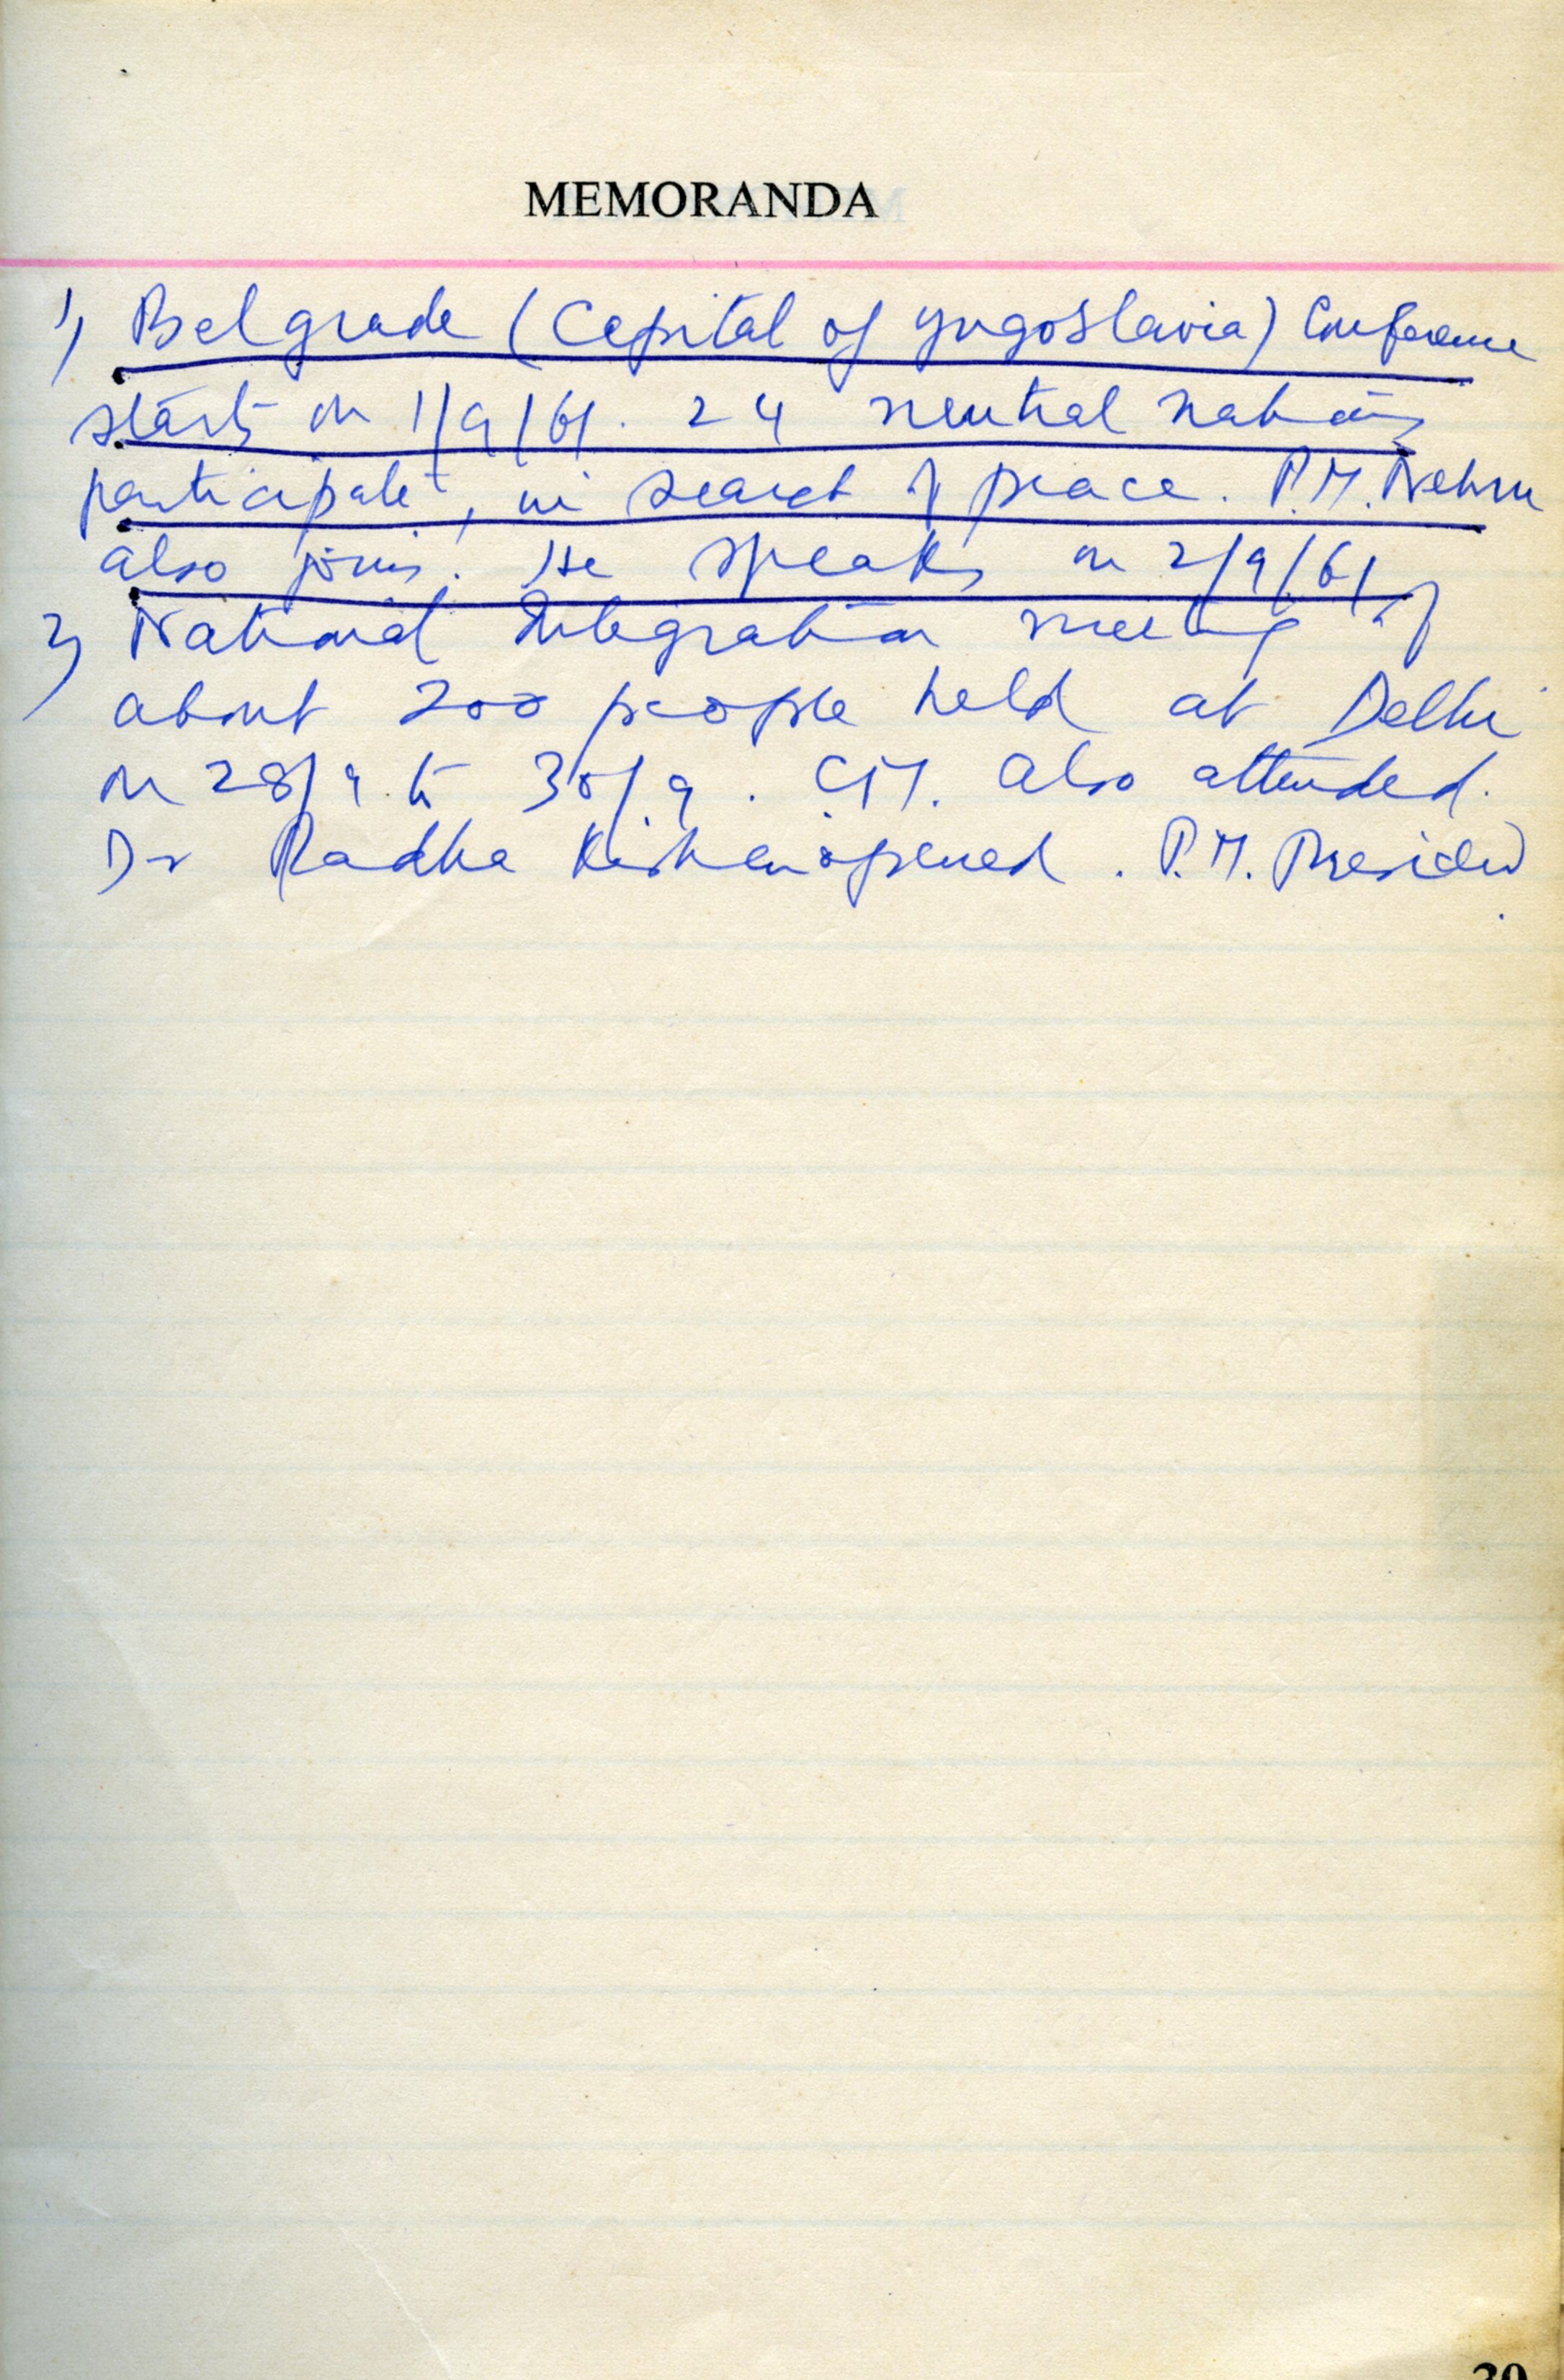 MEMORANDA
1) Belgrade (Capital of Yugoslavia) Conference
starts on 1/9/61. 24 neutral nations
participate, in search of peace. P.M. Nehru
also joins. He speaks on 2/9/61.
2) National Integration meeting of
about 200 people held at Delhi
on 28/9 to 30/9. C.M. also attended.
Dr Radha Kishan opened. P.M. Presided